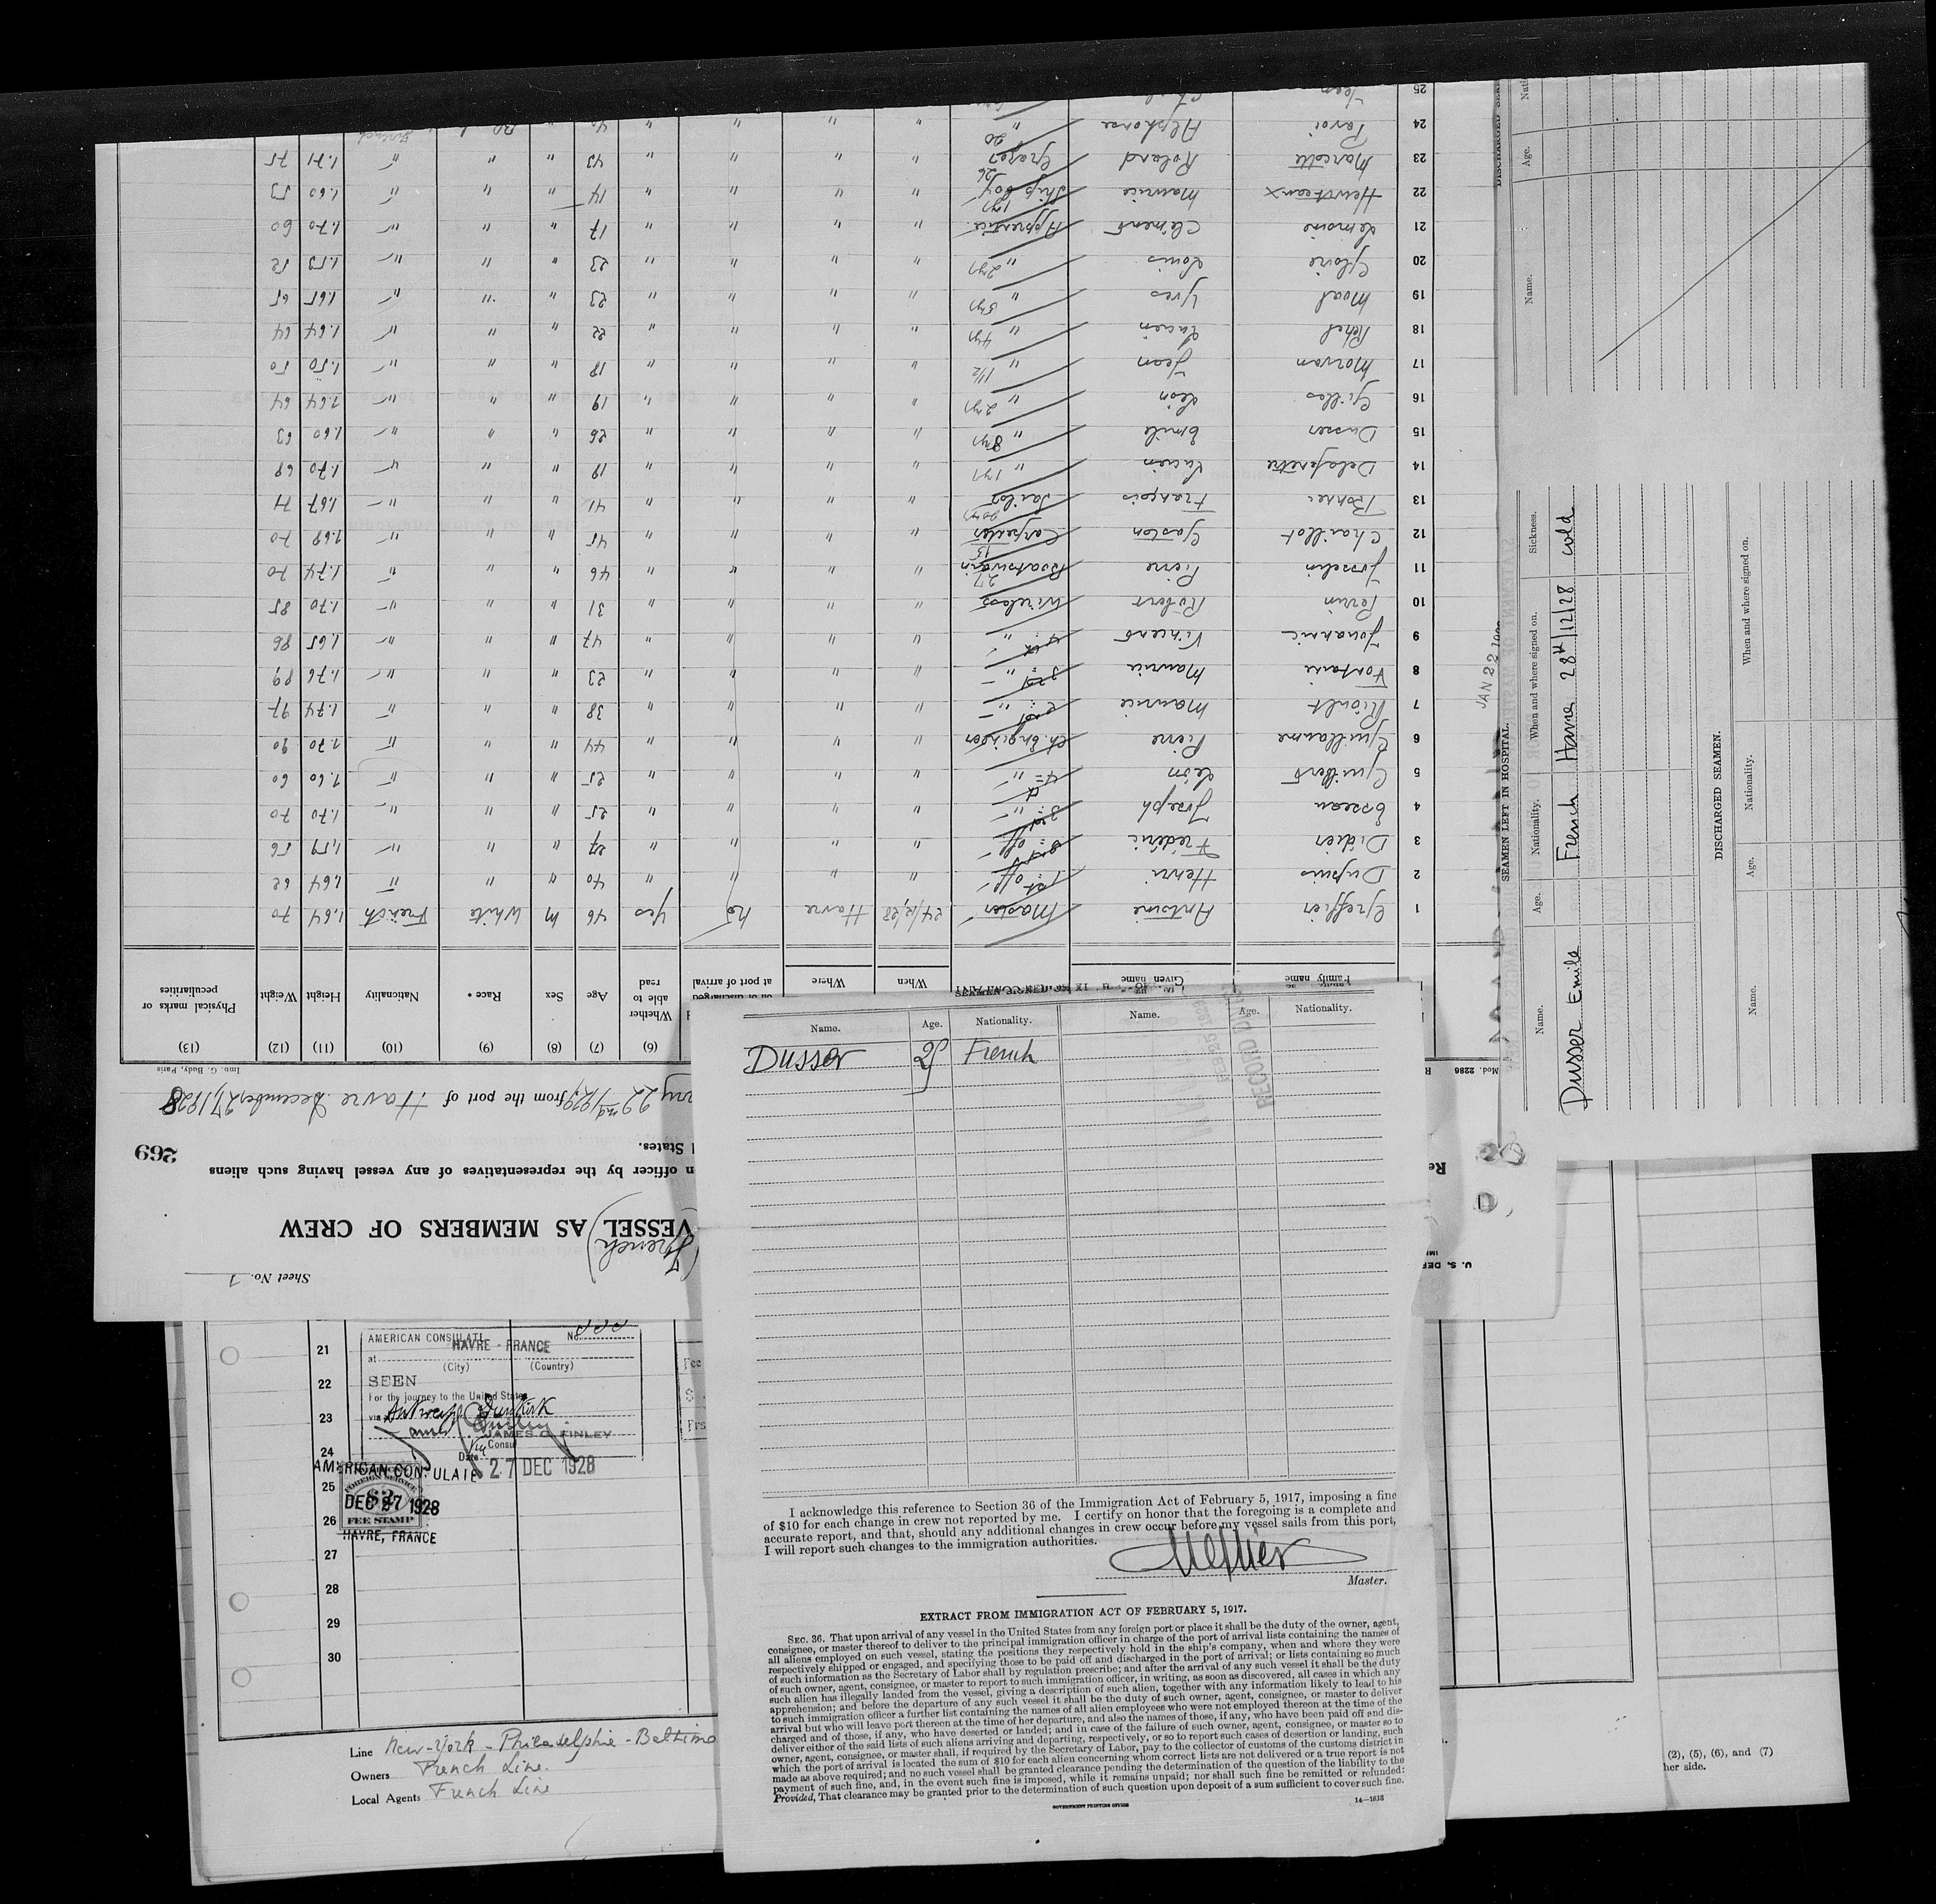 Sheet No. 1
VESSEL AS MEMBERS OF CREW
(French)
n officer by the representatives of any vessel having such aliens
269
d States.
22nd, 1929, from the port of Havre December 27, 1928
Imp. G. Budy, Paris
(6) (7) (8) (9) (10) (11) (12) (13)
Family name Given name When Where at port of arrival Whether able to read Age Sex Race * Nationality Height Weight Physical marks or peculiarities
1 Greffier Antoine Master 24/12/28 Havre no Yes 46 M White French 1.64 70
2 Dupuis Henri 1st off. " " " " 40 " " " 1.64 62
3 Didier Frédéric " " " " 27 " " " 1.59 56
4 Esseau Joseph 3rd " " " " " 25 " " " 1.70 70
5 Guilbert Léon 4th " " " " " 25 " " " 1.60 60
6 Guillaume Pierre Ch. Engineer " " " " 44 " " " 1.70 90
7 Rioult Maurice 2nd " " " " " 38 " " " 1.74 97
8 Fontaine Maurice 3rd " " " " " 23 " " " 1.76 89
9 Jouannic Vincent 4th " " " " " 47 " " " 1.65 86
10 Perrin Robert Wireless " " " " 31 " " " 1.70 85
11 Josselin Pierre Boatswain 27 " " " " 46 " " " 1.74 70
12 Chaillot Gaston Carpenter 15 " " " " 45 " " " 1.68 70
13 François Sailor 20 yrs " " " " 41 " " " 1.67 71
14 Delafenêtre Lucien " 1 yr " " " " 19 " " " 1.70 68
15 Dusser Emile " 8 yrs " " " " 26 " " " 1.60 63
16 Gilles Léon " 2 yrs " " " " 19 " " " 1.64 64
17 Morvan Jean " 1 1/2 " " " " 18 " " " 1.50 50
18 Réhel Lucien " 4 yrs " " " " 22 " " " 1.64 64
19 Moal Yves " 5 yrs " " " " 23 " " " 1.65 65
20 Glorie Louis " 2 yrs " " " " 23 " " " 1.53 52
21 Lemoine Clément Apprentice " " " " 17 " " " 1.70 60
22 Heurteaux Maurice Ship boy 1 yr " " " " 14 " " " 1.60 53
23 Marcotte Roland Greaser 26 " " " " 43 " " " 1.71 75
24 Alphonse " 20 " " " " 40
25 Jean
Mod. 2286
U. S. DEP
JAN 22
SEAMEN LEFT IN HOSPITAL.
Name. Age. Nationality. When and where signed on. Sickness.
Dusser Emile French Havre 28th/12/28 cold
DISCHARGED SEAMEN.
Name. Age. Nationality. When and where signed on.
Name. Age. Nat
Name. Age. Nationality. Name. Age. Nationality.
Dusser 25 French
RECORD
I acknowledge this reference to Section 36 of the Immigration Act of February 5, 1917, imposing a fine
of $10 for each change in crew not reported by me. I certify on honor that the foregoing is a complete and
accurate report, and that, should any additional changes in crew occur before my vessel sails from this port,
I will report such changes to the immigration authorities.
Master.
EXTRACT FROM IMMIGRATION ACT OF FEBRUARY 5, 1917.
SEC. 36. That upon arrival of any vessel in the United States from any foreign port or place it shall be the duty of the owner, agent,
consignee, or master thereof to deliver to the principal immigration officer in charge of the port of arrival lists containing the names of
all aliens employed on such vessel, stating the positions they respectively hold in the ship's company, when and where they were
respectively shipped or engaged, and specifying those to be paid off and discharged in the port of arrival; or lists containing so much
of such information as the Secretary of Labor shall by regulation prescribe; and after the arrival of any such vessel it shall be the duty
of such owner, agent, consignee, or master to report to such immigration officer, in writing, as soon as discovered, all cases in which any
such alien has illegally landed from the vessel, giving a description of such alien, together with any information likely to lead to his
apprehension; and before the departure of any such vessel it shall be the duty of such owner, agent, consignee, or master to deliver
to such immigration officer a further list containing the names of all alien employees who were not employed thereon at the time of the
arrival but who will leave port thereon at the time of her departure, and also the names of those, if any, who have been paid off and dis-
charged and of those, if any, who have deserted or landed; and in case of the failure of such owner, agent, consignee, or master so to
deliver either of the said lists of such aliens arriving and departing, respectively, or so to report such cases of desertion or landing, such
owner, agent, consignee, or master shall, if required by the Secretary of Labor, pay to the collector of customs of the customs district in
which the port of arrival is located the sum of $10 for each alien concerning whom correct lists are not delivered or a true report is not
made as above required; and no such vessel shall be granted clearance pending the determination of the question of the liability to the
payment of such fine, and, in the event such fine is imposed, while it remains unpaid; nor shall such fine be remitted or refunded:
Provided, That clearance may be granted prior to the determination of such question upon deposit of a sum sufficient to cover such fine.
GOVERNMENT PRINTING OFFICE
14—1818
AMERICAN CONSULATE No.
at HAVRE - FRANCE
(City) (Country)
SEEN
For the journey to the United States
via Antwerp Dunkirk
JAMES G. FINLEY
Consul
Date 27 DEC 1928
AMERICAN CONSULATE
FOREIGN SERVICE
$2
DEC 27 1928
FEE STAMP
HAVRE, FRANCE
21
22
23
24
25
26
27
28
29
30
Line New-York - Philadelphie - Baltimo
Owners French Line.
Local Agents French Line
(2), (5), (6), and (7)
her side.